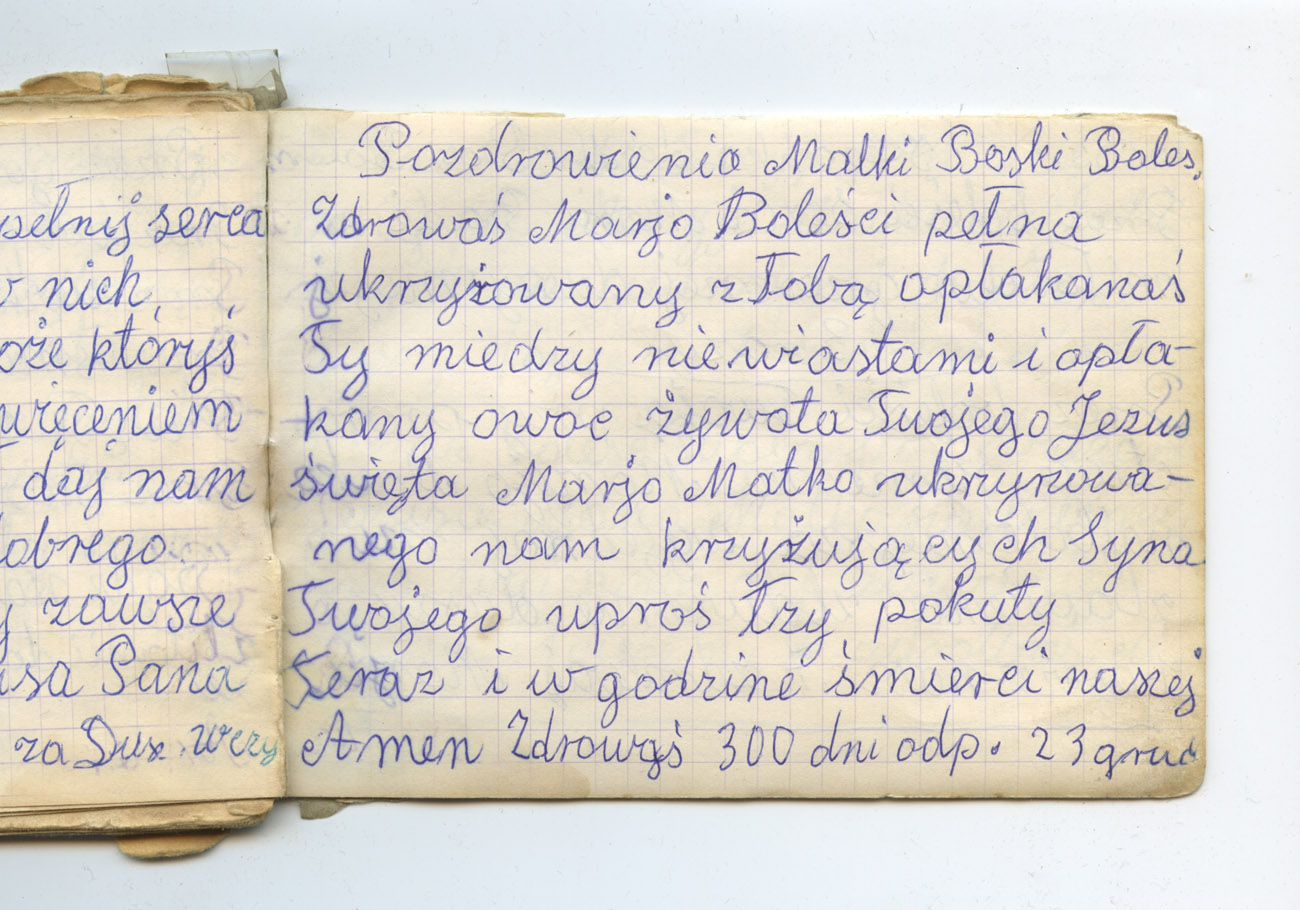 pełnij serca
w nich
oże któryś
więceniem
daj nam
dobrego
zawsze
usa Pana
za Dusz. Wczy
Pozdrowienia Matki Boski Boles.
Zdrowaś Marjo Boleści pełna
ukrzyżowany z Tobą opłakanaś
Ty miedzy niewiastami i opła-
kany owoc żywota Twojego Jezus
święta Marjo Matko ukrzyzowa-
nego nam krzyżujących Syna
Twojego uproś łzy pokuty
Teraz i w godzine śmierci naszej
Amen Zdrowaś 300 dni odp. 23 grud